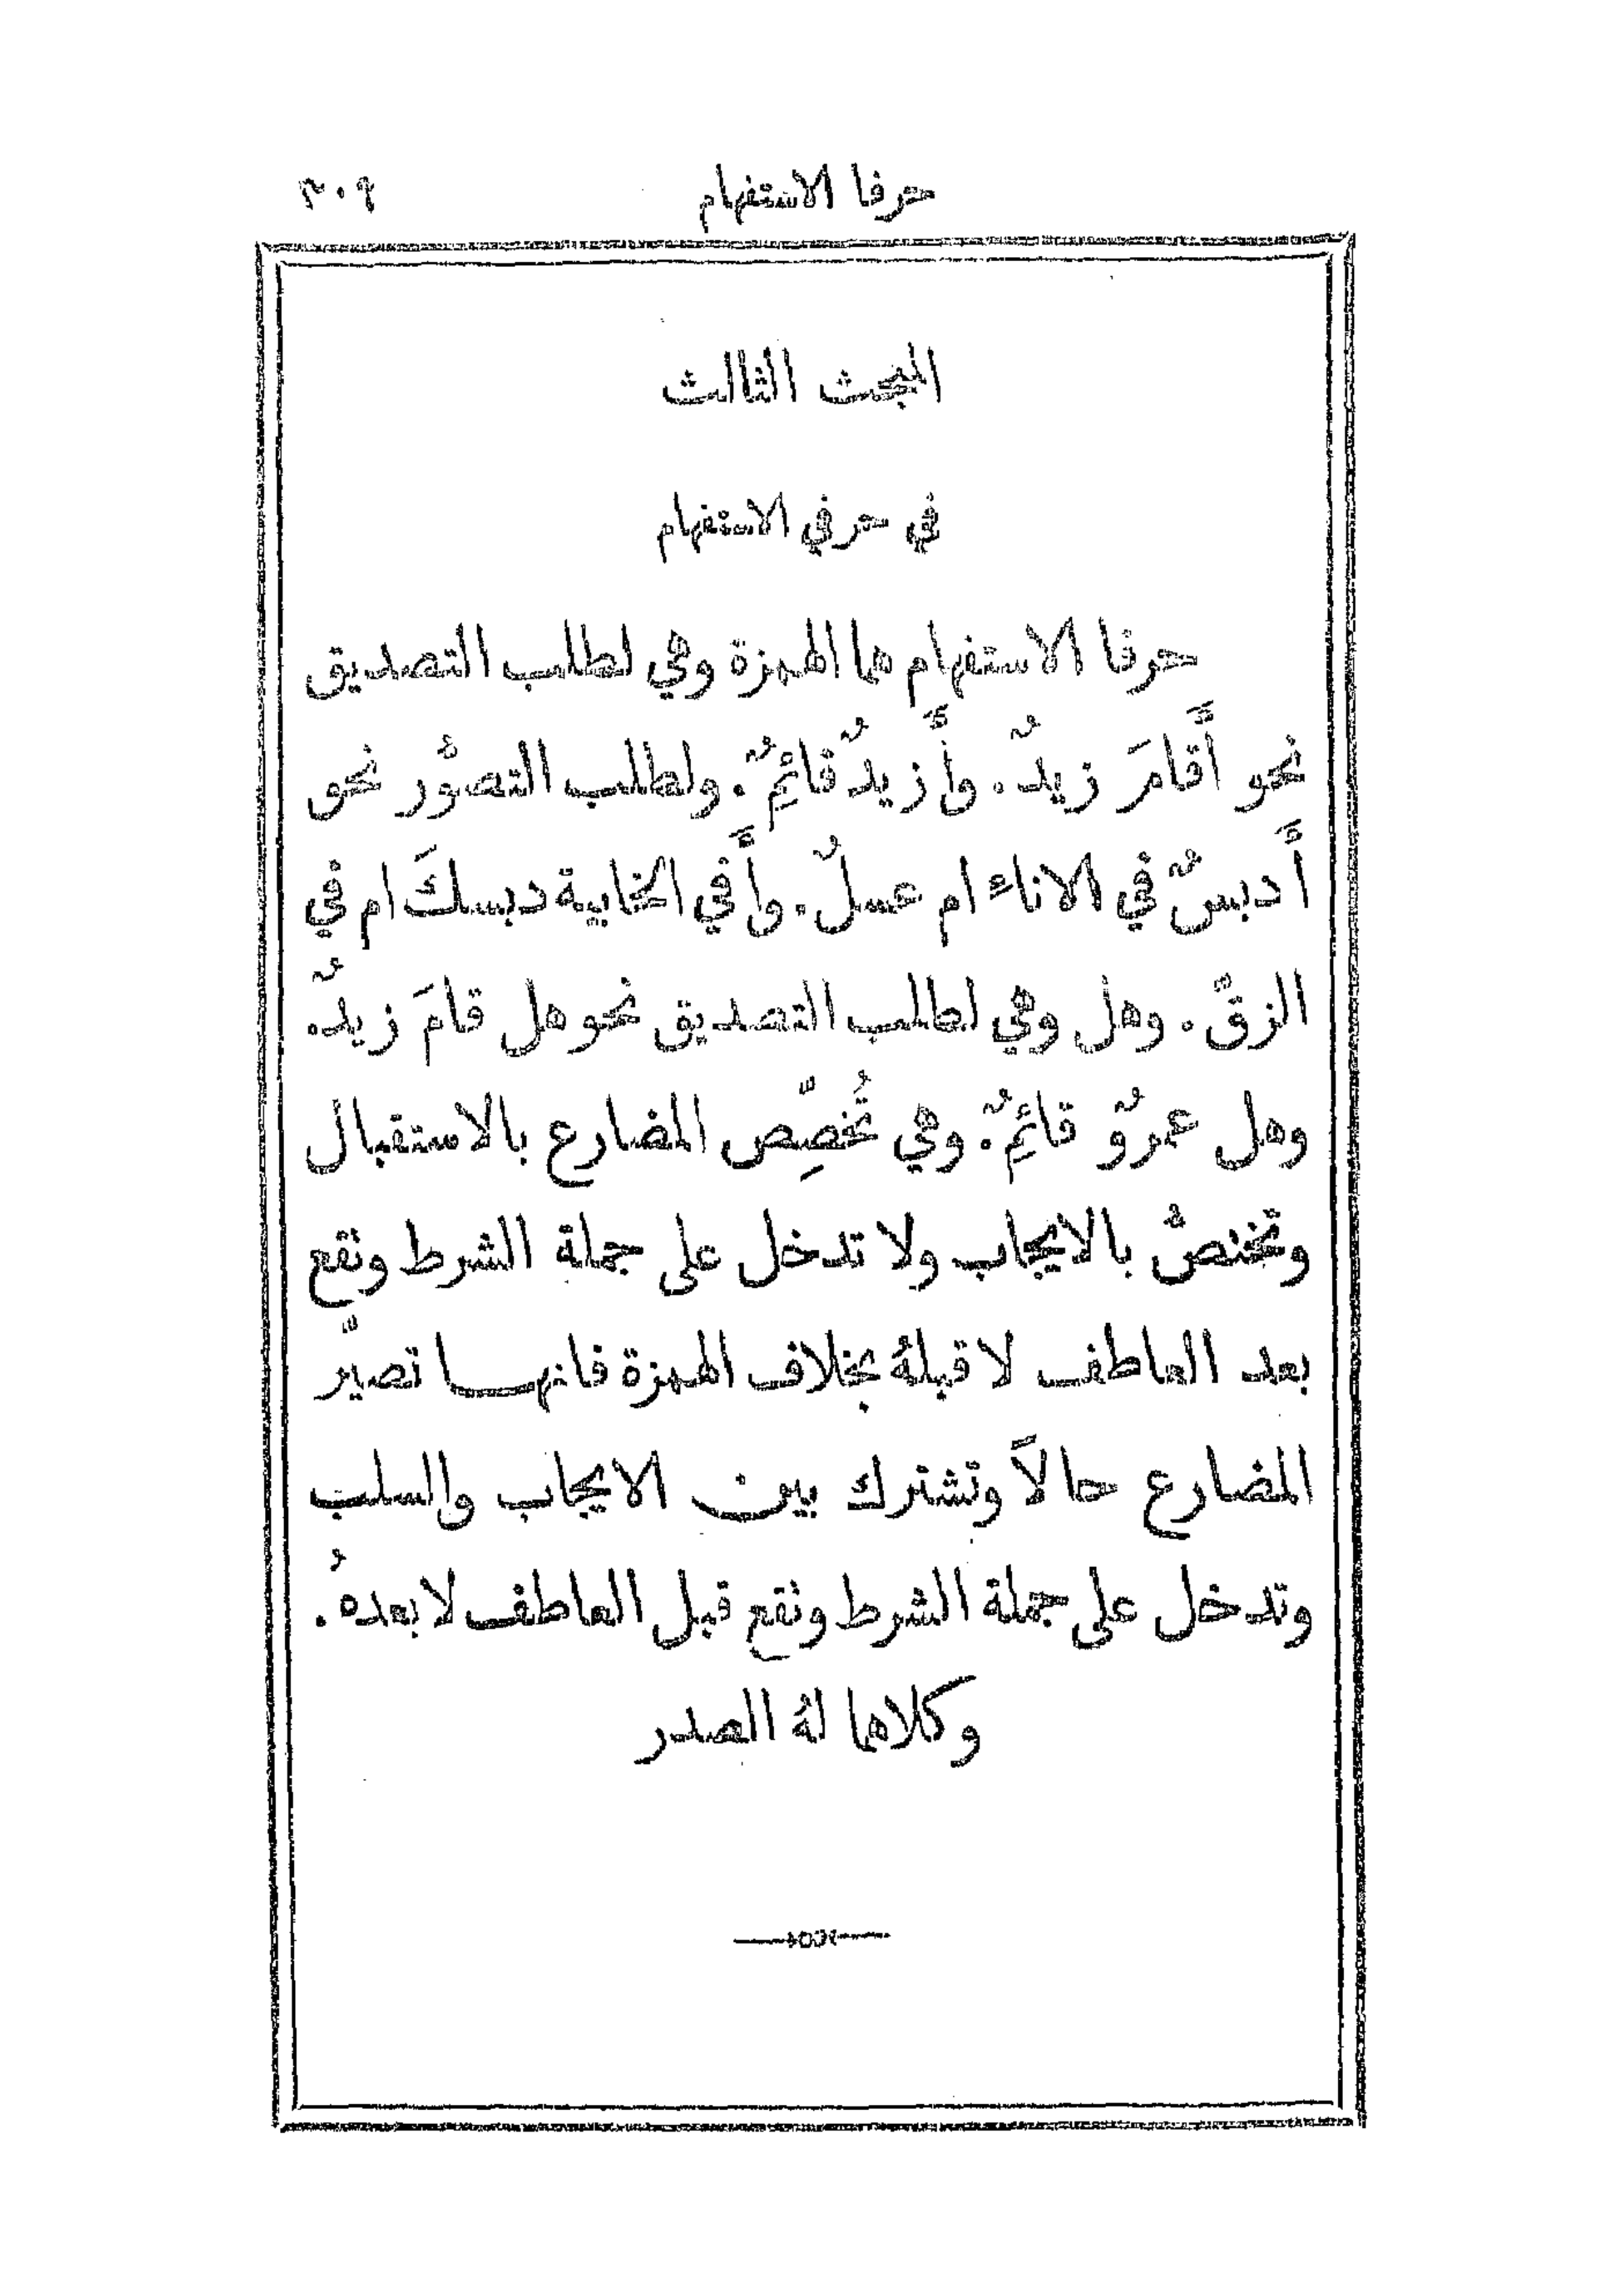 حرفا الاستفهام ٣٠٩
المبحث الثالث
في حرفي الاستفهام
حرفا الاستفهام هما الهمزة وهي لطلب التصديق
نحو أَقامَ زيدٌ. وأَزيدٌ قائمٌ. ولطلب التصوُّر نحو
أَدبسٌ في الاناء ام عسلٌ. وأَفي الخابية دبسكَ ام في
الزقّ. وهل وهي لطلب التصديق نحو هل قامَ زيدٌ.
وهل عمرٌو قائمٌ. وهي تُخصِّص المضارع بالاستقبال
وتختصُّ بالايجاب ولا تدخل على جملة الشرط وتقع
بعد العاطف لا قبلهُ بخلاف الهمزة فانهـا تصيّر
المضارع حالاً وتشترك بين الايجاب والسلب
وتدخل على جملة الشرط وتقع قبل العاطف لا بعدهُ.
وكلاهما لهُ الصدر